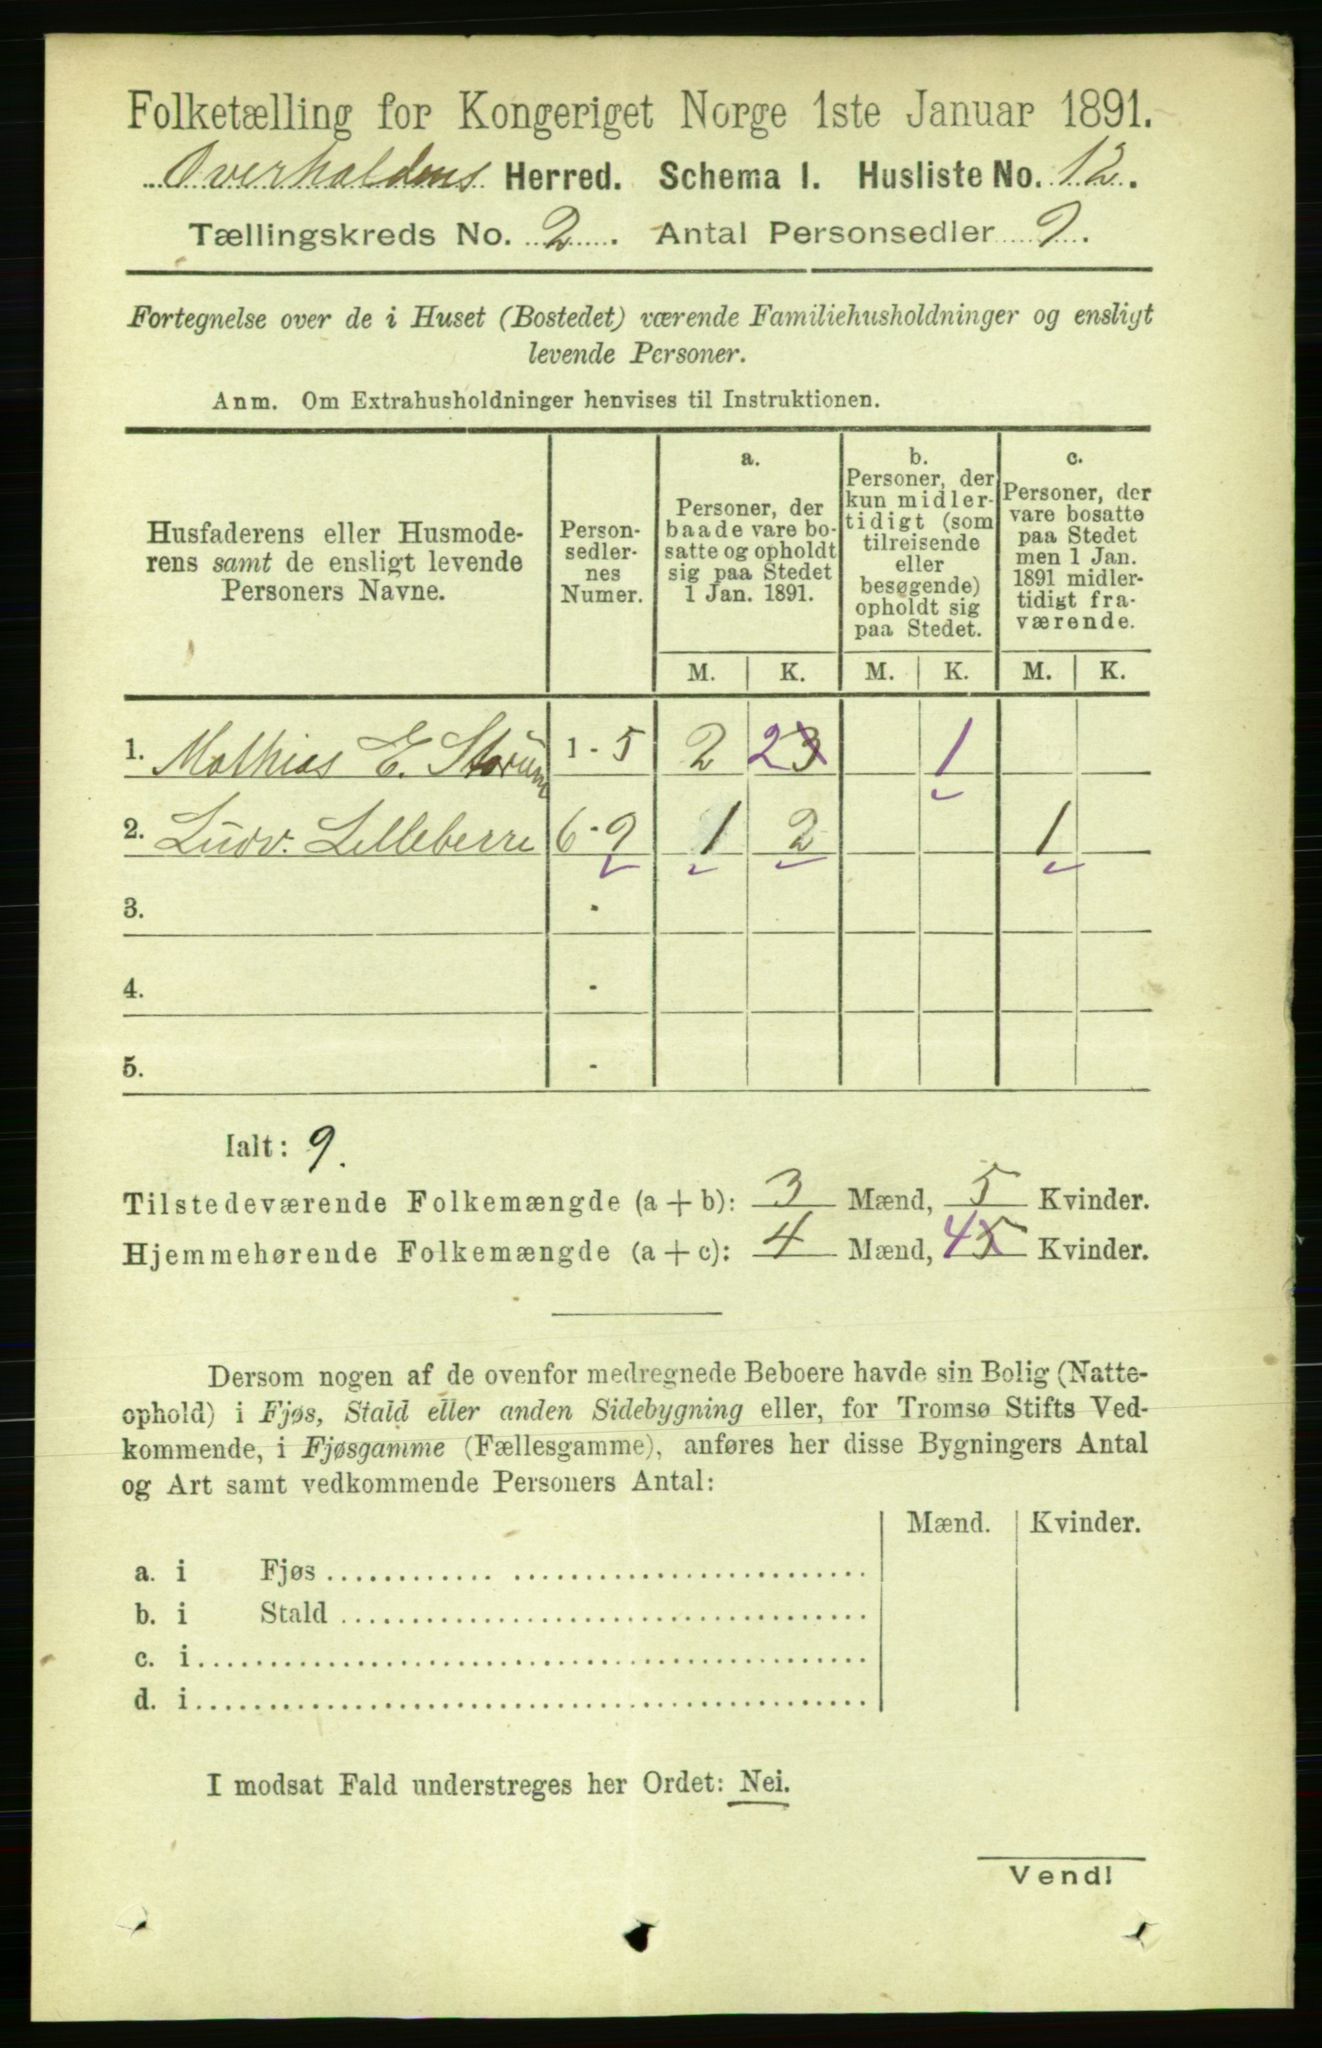 Folketælling for Kongeriget Norge 1ste Januar 1891.
Overhaldens Herred. Schema I. Husliste No. 12.
Tællingskreds No. 2. Antal Personsedler 9.
Fortegnelse over de i Huset (Bostedet) værende Familiehusholdninger og ensligt
levende Personer.
Anm. Om Extrahusholdninger henvises til Instruktionen.
Husfaderens eller Husmode-
rens samt de ensligt levende
Personers Navne.
Person-
sedler-
nes
Numer.
a.
Personer, der
baade vare bo-
satte og opholdt
sig paa Stedet
1 Jan. 1891.
b.
Personer, der
kun midler-
tidigt (som
tilreisende
eller
besøgende)
opholdt sig
paa Stedet.
c.
Personer, der
vare bosatte
paa Stedet
men 1 Jan.
1891 midler-
tidigt fra-
værende.
M. K. M. K. M. K.
1. Mathias E. 1 - 5 2 2 3 1
2. Ludv. Lilleberre 6 - 9 1 2 1
3. -
4. -
5. -
Ialt: 9.
Tilstedeværende Folkemængde (a + b): 3 Mænd, 5 Kvinder.
Hjemmehørende Folkemængde (a + c): 4 Mænd, 4 5 Kvinder.
Dersom nogen af de ovenfor medregnede Beboere havde sin Bolig (Natte-
ophold) i Fjøs, Stald eller anden Sidebygning eller, for Tromsø Stifts Ved-
kommende, i Fjøsgamme (Fællesgamme), anføres her disse Bygningers Antal
og Art samt vedkommende Personers Antal:
Mænd. Kvinder.
a. i Fjøs
b. i Stald
c. i
d. i
I modsat Fald understreges her Ordet: Nei.
Vend!